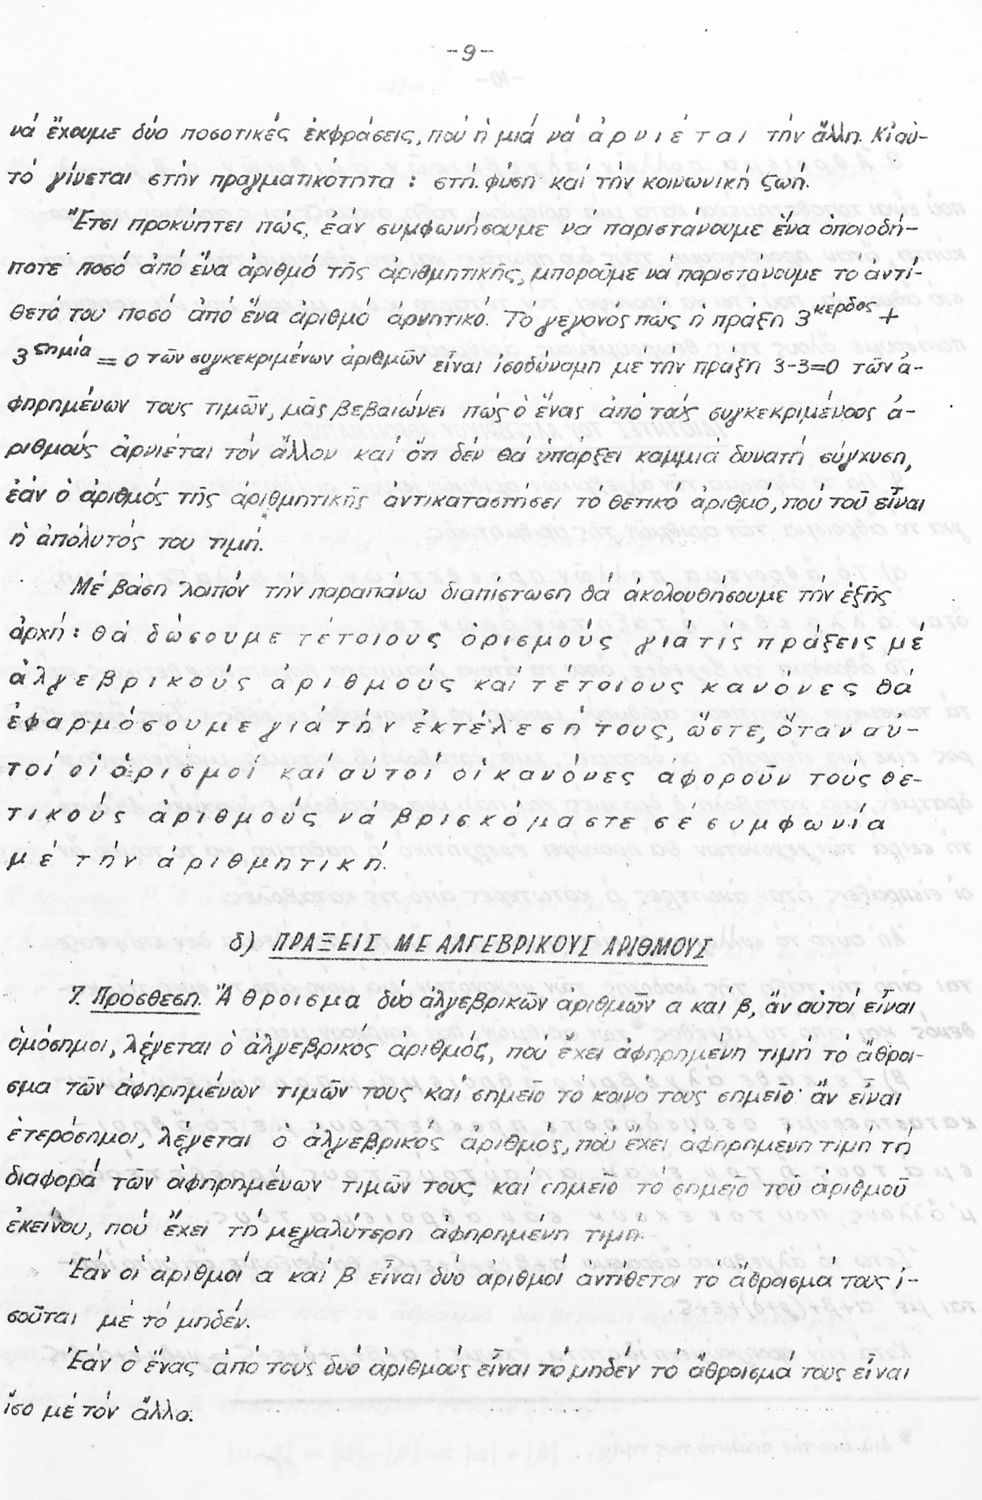 -9-
νά ἔχουμε δύο ποσοτικές ἐκφράσεις, πού ἡ μιά νά ἀρνιέται τήν ἄλλη. Κι αὐ-
τό γίνεται στήν πραγματικότητα: στή φύση καί τήν κοινωνική ζωή.
Ἔτσι προκύπτει πώς, ἐάν συμφωνήσουμε νά παριστάνουμε ἕνα ὁποιοδή-
ποτε ποσό ἀπό ἕνα ἀριθμό τῆς ἀριθμητικῆς, μποροῦμε νά παριστάνουμε τό ἀντί-
θετό του ποσό ἀπό ἕνα ἀριθμό ἀρνητικό. Τό γεγονός πώς ἡ πράξη 3 κέρδος +
3 ζημία = 0 τῶν συγκεκριμένων ἀριθμῶν εἶναι ἰσοδύναμη μέ τήν πράξη 3-3=0 τῶν ἀ-
φηρημένων τους τιμῶν, μᾶς βεβαιώνει πώς ὁ ἕνας ἀπό τούς συγκεκριμένους ἀ-
ριθμούς ἀρνιέται τόν ἄλλον καί ὅτι δέν θά ὑπάρξει καμμιά δυνατή σύγχυση,
ἐάν ὁ ἀριθμός τῆς ἀριθμητικῆς ἀντικαταστήσει τό θετικό ἀριθμό, πού τοῦ εἶναι
ἡ ἀπόλυτός του τιμή.
Μέ βάση λοιπόν τήν παραπάνω διαπίστωση θά ἀκολουθήσουμε τήν ἑξῆς
ἀρχή: θά δώσουμε τέτοιους ὁρισμούς γιά τίς πράξεις μέ
ἀλγεβρικούς ἀριθμούς καί τέτοιους κανόνες θά
ἐφαρμόσουμε γιά τήν ἐκτέλεσή τους, ὥστε, ὅταν αὐ-
τοί οἱ ὁρισμοί καί αὐτοί οἱ κανόνες ἀφοροῦν τους θε-
τικούς ἀριθμούς νά βρισκόμαστε σέ συμφωνία
μέ τήν ἀριθμητική.
δ) ΠΡΑΞΕΙΣ ΜΕ ΑΛΓΕΒΡΙΚΟΥΣ ΑΡΙΘΜΟΥΣ
7. Πρόσθεση. Ἄθροισμα δύο ἀλγεβρικῶν ἀριθμῶν α καί β, ἄν αὐτοί εἶναι
ὁμόσημοι, λέγεται ὁ ἀλγεβρικός ἀριθμός, πού ἔχει ἀφηρημένη τιμή τό ἄθροι-
σμα τῶν ἀφηρημένων τιμῶν τους καί σημεῖο τό κοινό τους σημεῖο· ἄν εἶναι
ἑτερόσημοι, λέγεται ὁ ἀλγεβρικός ἀριθμός, πού ἔχει ἀφηρημένη τιμή τή
διαφορά τῶν ἀφηρημένων τιμῶν τους καί σημεῖο τό σημεῖο τοῦ ἀριθμοῦ
ἐκείνου, πού ἔχει τή μεγαλύτερη ἀφηρημένη τιμή.
Ἐάν οἱ ἀριθμοί α καί β εἶναι δυό ἀριθμοί ἀντίθετοι τό ἄθροισμά τους ἰ-
σοῦται μέ τό μηδέν.
Ἐάν ὁ ἕνας ἀπό τους δυό ἀριθμούς εἶναι τό μηδέν τό ἄθροισμά τους εἶναι
ἴσο μέ τόν ἄλλο.